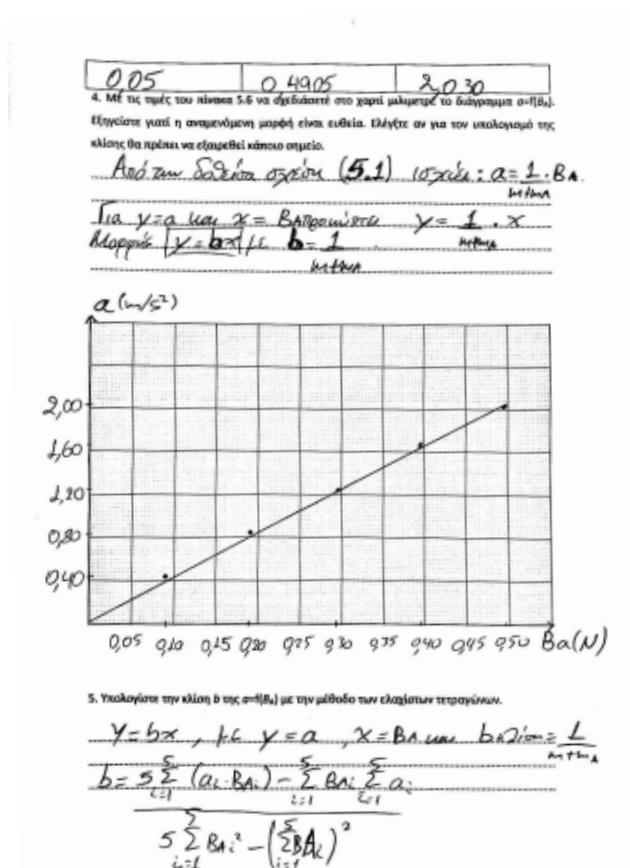 0,05 0,4905 2,030
4. Με τις τιμές του πίνακα 5.6 να σχεδιάσετε στο χαρτί μιλιμετρέ το διάγραμμα α=f(Bₐ).
Εξηγείστε γιατί η αναμενόμενη μορφή είναι ευθεία. Ελέγξτε αν για τον υπολογισμό της
κλίσης θα πρέπει να εξαιρεθεί κάποιο σημείο.
Από την δοθείσα σχέση (5.1) ισχύει: a = 1/(m+mA) · BA
Για y=a και x = BA προκύπτει y = 1/(m+mA) · x
Μορφής y = bx με b = 1/(m+mA)
a (m/s²)
2,00
1,60
1,20
0,80
0,40
0,05 0,10 0,15 0,20 0,25 0,30 0,35 0,40 0,45 0,50 Ba(N)
5. Υπολογίστε την κλίση b της α=f(Bₐ) με την μέθοδο των ελαχίστων τετραγώνων.
Y = bx, με y = a, x = BA και b κλίση = 1/(m+mA)
b = 5 Σ (ai·BAi) − Σ BAi Σ ai
5 Σ BAi² − (Σ BAi)²